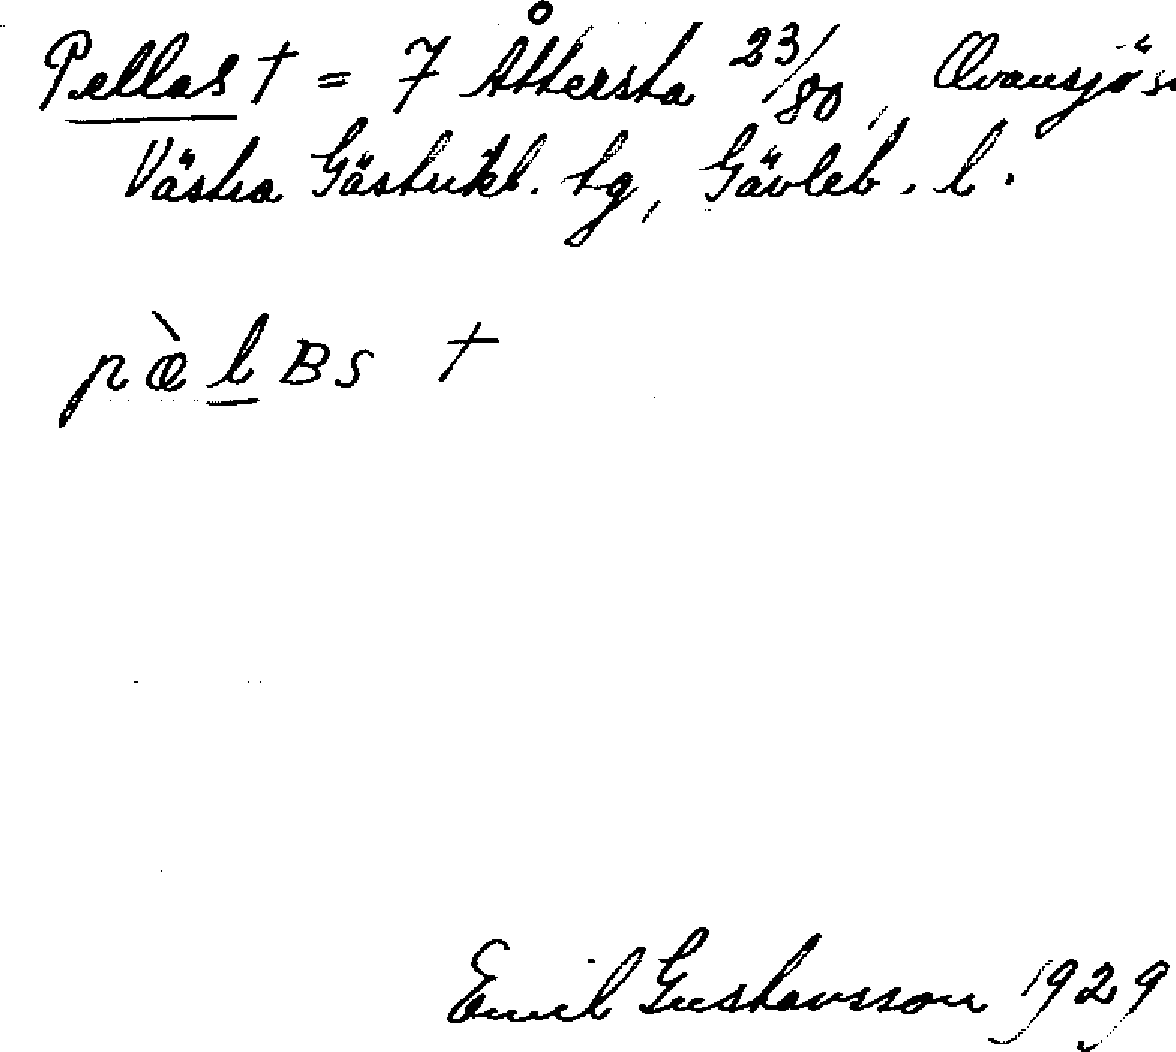 Pellas † = 7 Åttersta 23/80, Ovansjö s
Västra Gästrikl. tg, Gävleb. l.
pæ̀l̲ʙs †
Emil Gustavsson 1929